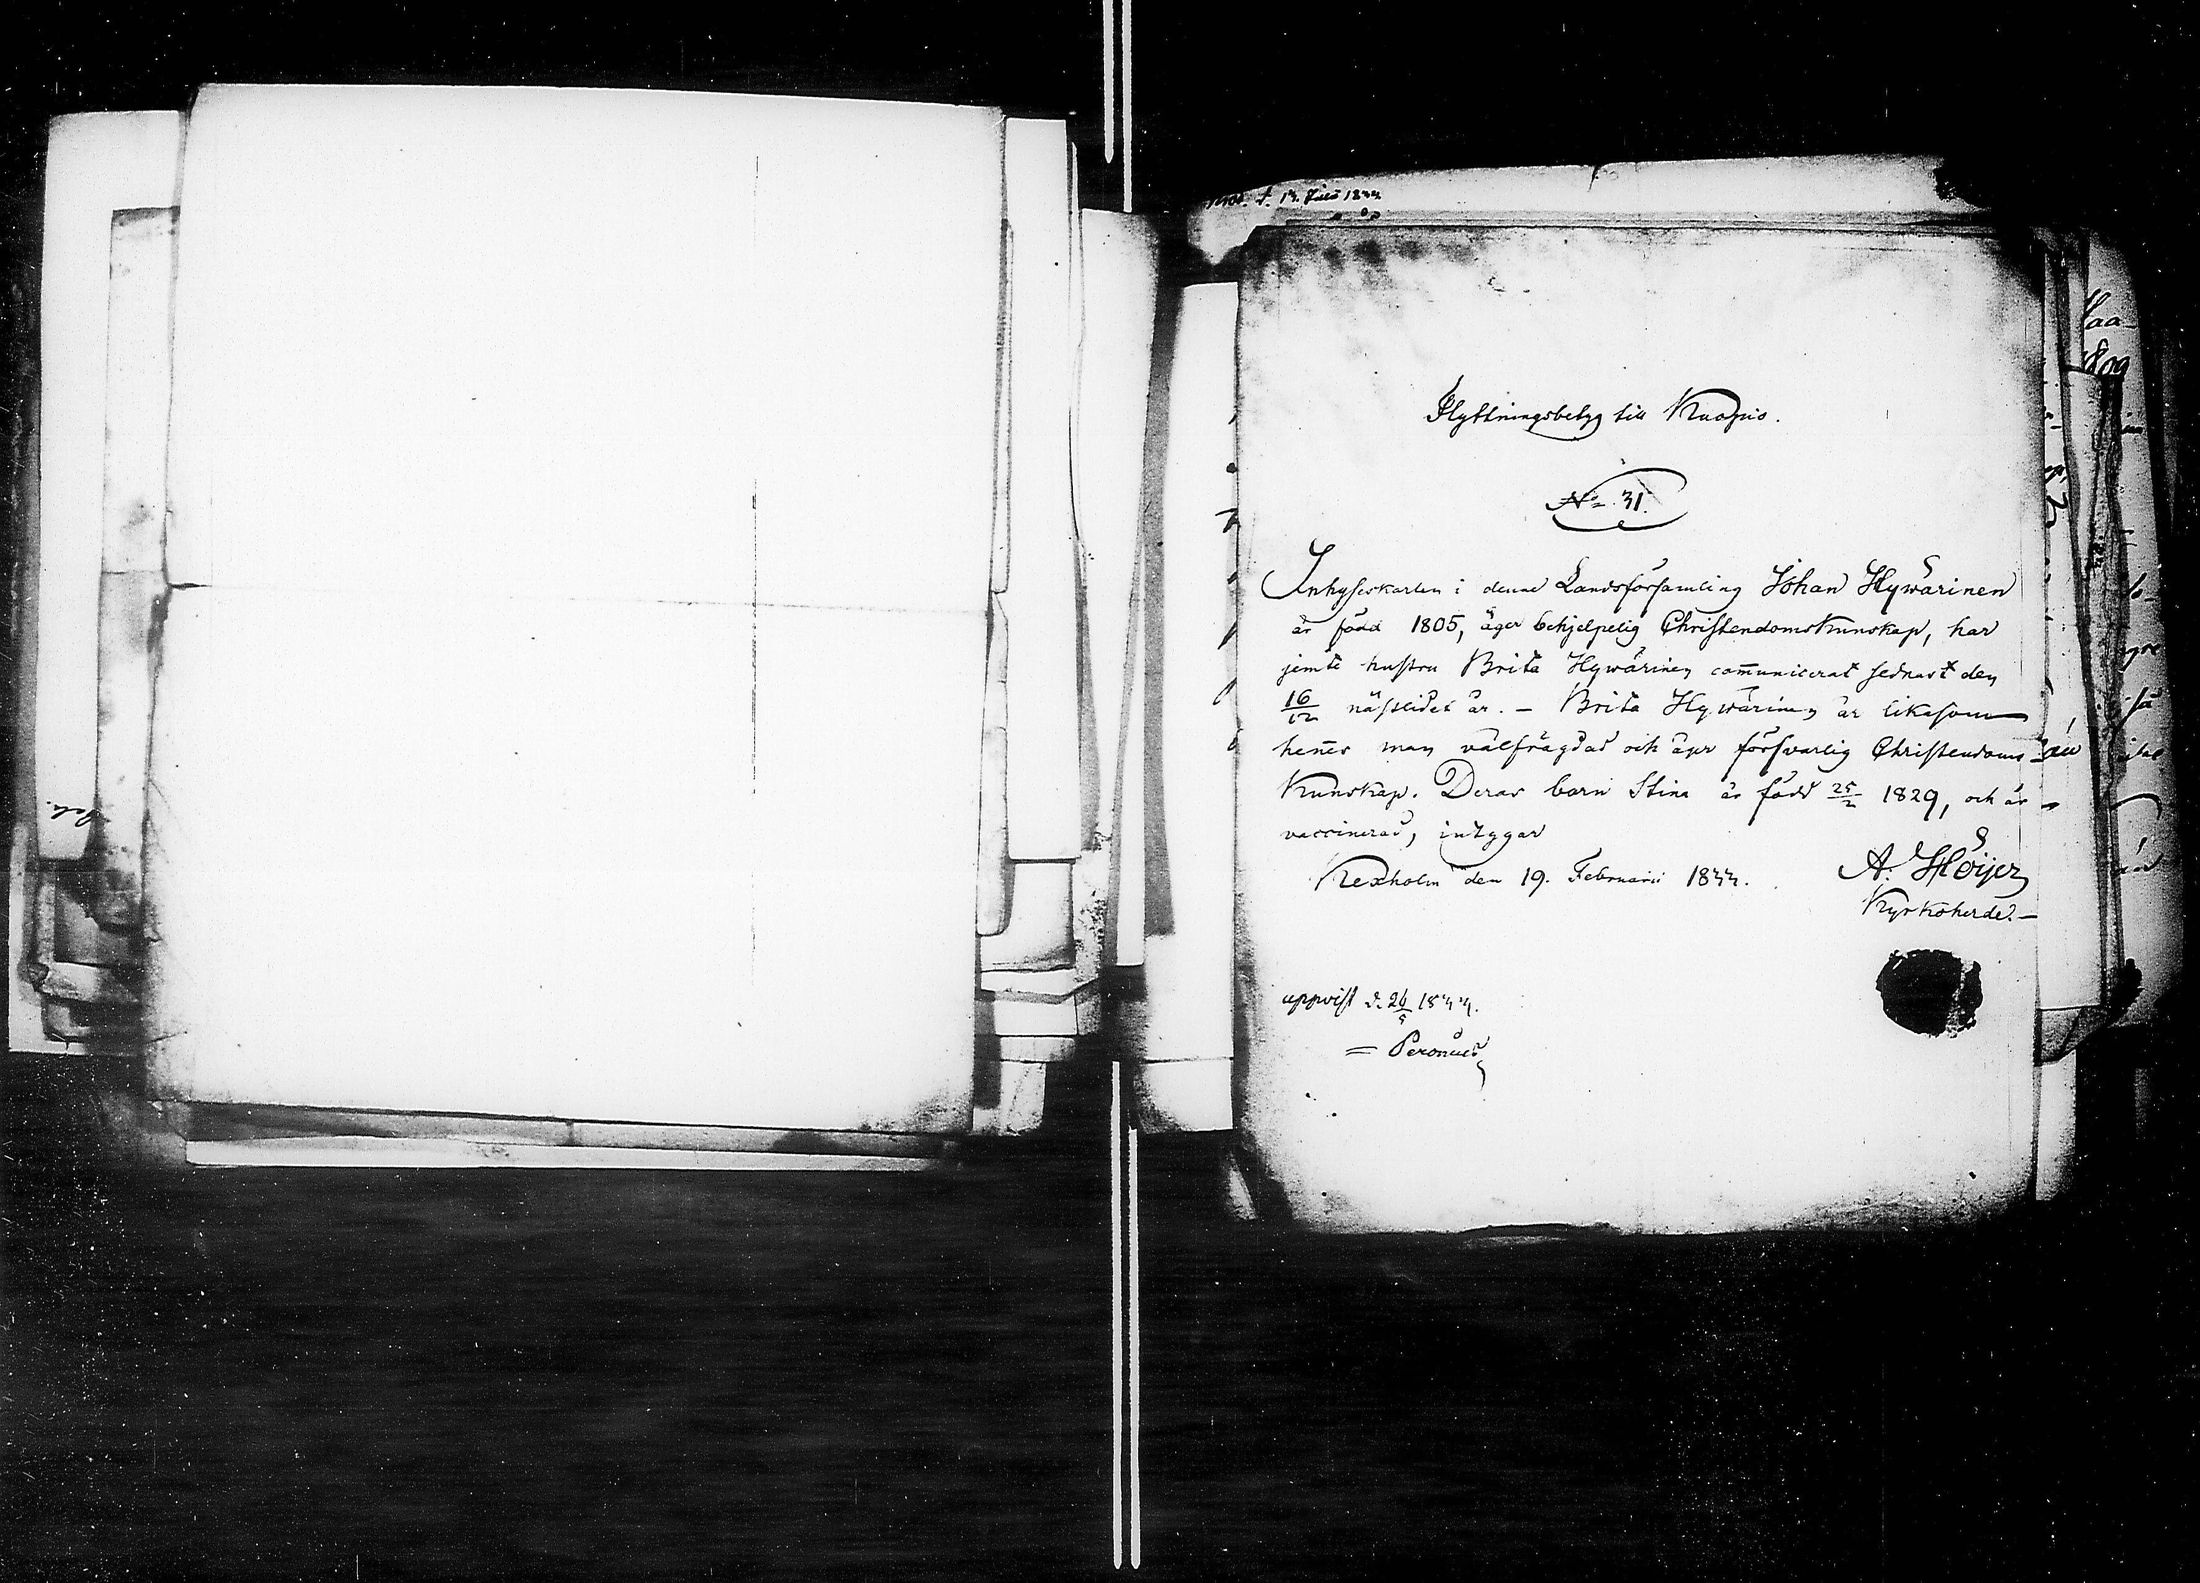 Flyttningsbetyg till Kuopio.
No 31.
Inhyseskarlen i denne Landsförsamling Johan Hywärinen
är född 1805, äger behjelpelig Christendomskunskap, har
jemte hustru Brita Hywärinen com̄unicerat sednast den
16/12 nästlidet år. – Brita Hywärinen är likasom
hen̄es man välfrägdad och äger försvarlig Christendoms
Kunskap. Deras barn Stina är född 25/2 1829, och är
vaccinerad, intygar
Kexholm den 19. Februarii 1844.
A. Höijer
Kyrkoherde. –
uppvist d. 26/5 1844.